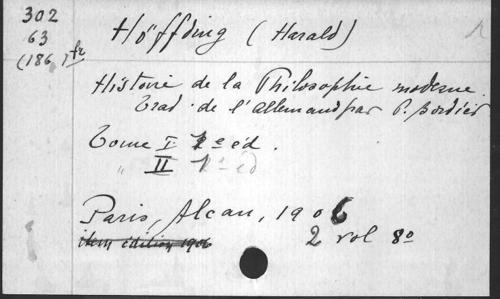 302
63
(186.) fr
Höffding (Harald)
Histoire de la Philosophie moderne.
Trad. de l'allemand par P. Bordier
Tome I 2e éd.
" II 1e éd
Paris, Alcan, 1906
item édition 1906
2 vol 8o